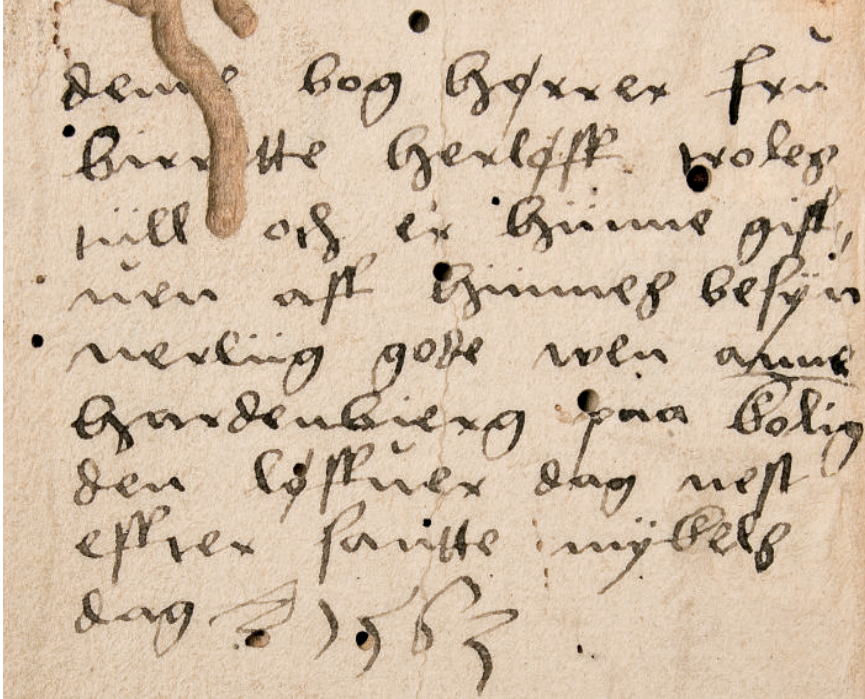 denne bog hørrer frŭ
birrette herløff troles
tiill och er hŭnne giff,
ŭen aff hinnes besÿn
nerliig gode wen anne
hardenbierg paa bolig
den løffŭer dag nest
effter santte mÿkels
dag 1563